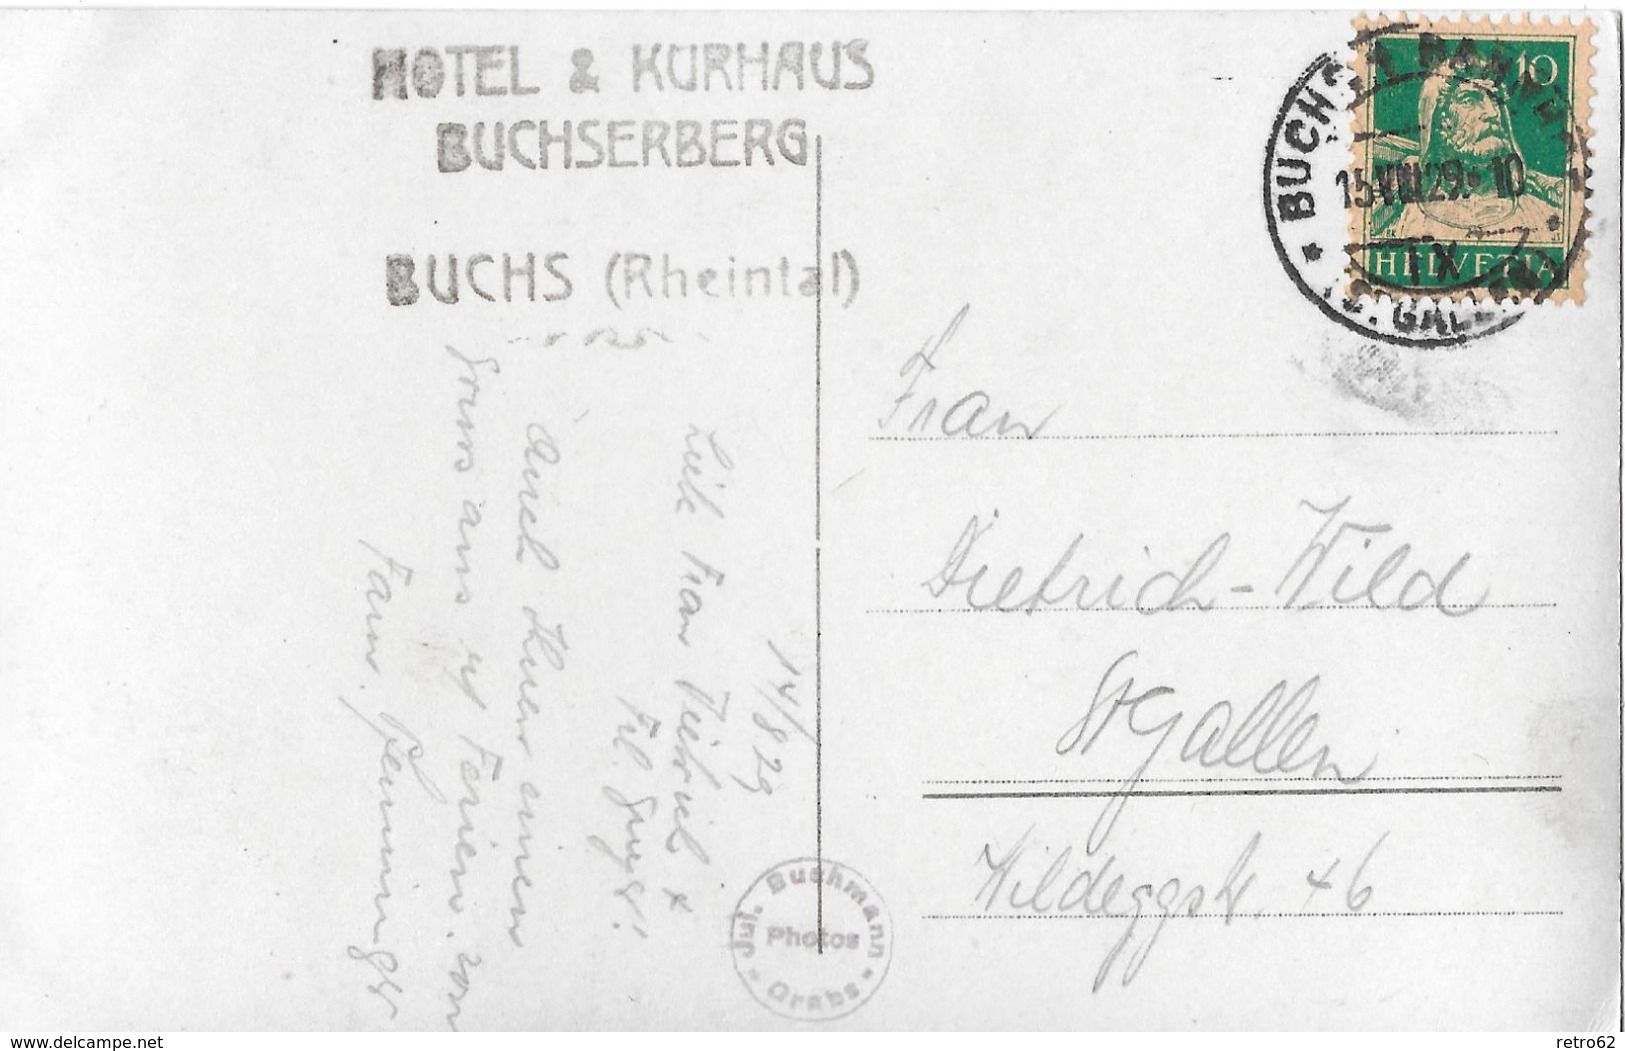 HOTEL & KURHAUS
BUCHSERBERG
BUCHS (Rheintal)
10
HELVETIA
BUCHS BAHNHOF
15.VIII.29.-10
IX
(ST. GALLEN)
14/8 29
Frau Dietrich &
Frl.
Auch Ihnen einen
Gruss aus Ferien. von
Fam.
Frau
Dietrich-Wild
St Gallen
Wildeggstr. 46
Jul. Buchmann
Photos
Grabs
www.delcampe.net
retro62